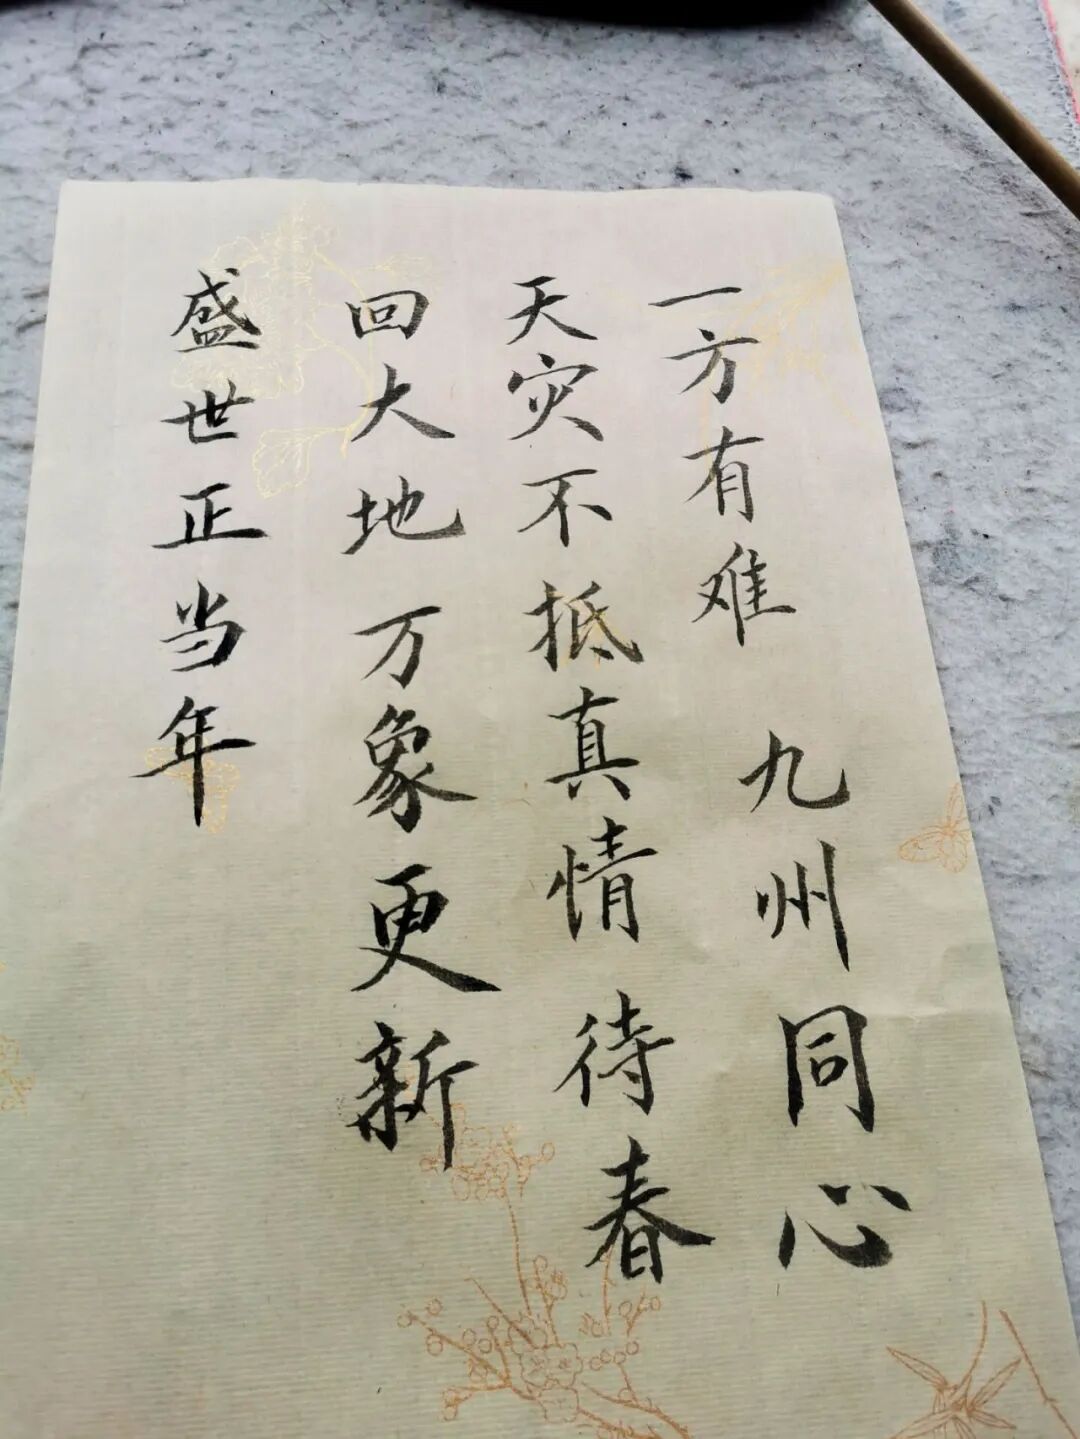 一方有难 九州同心
天灾不抵真情待春
回大地万象更新
盛世正当年